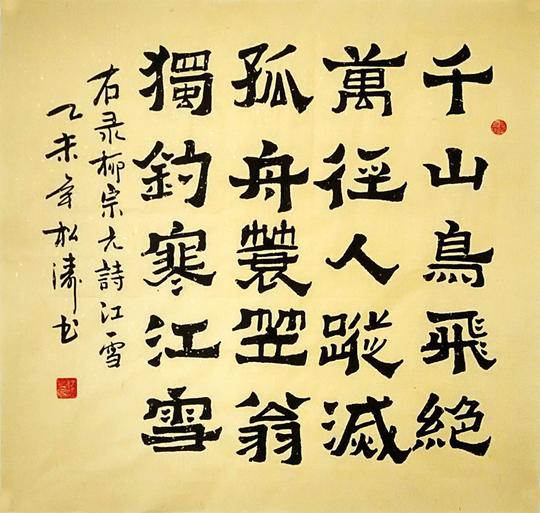 千山鳥飛絕
萬徑人蹤滅
孤舟蓑笠翁
獨釣寒江雪
右录柳宗元詩江雪
乙未年松濤书